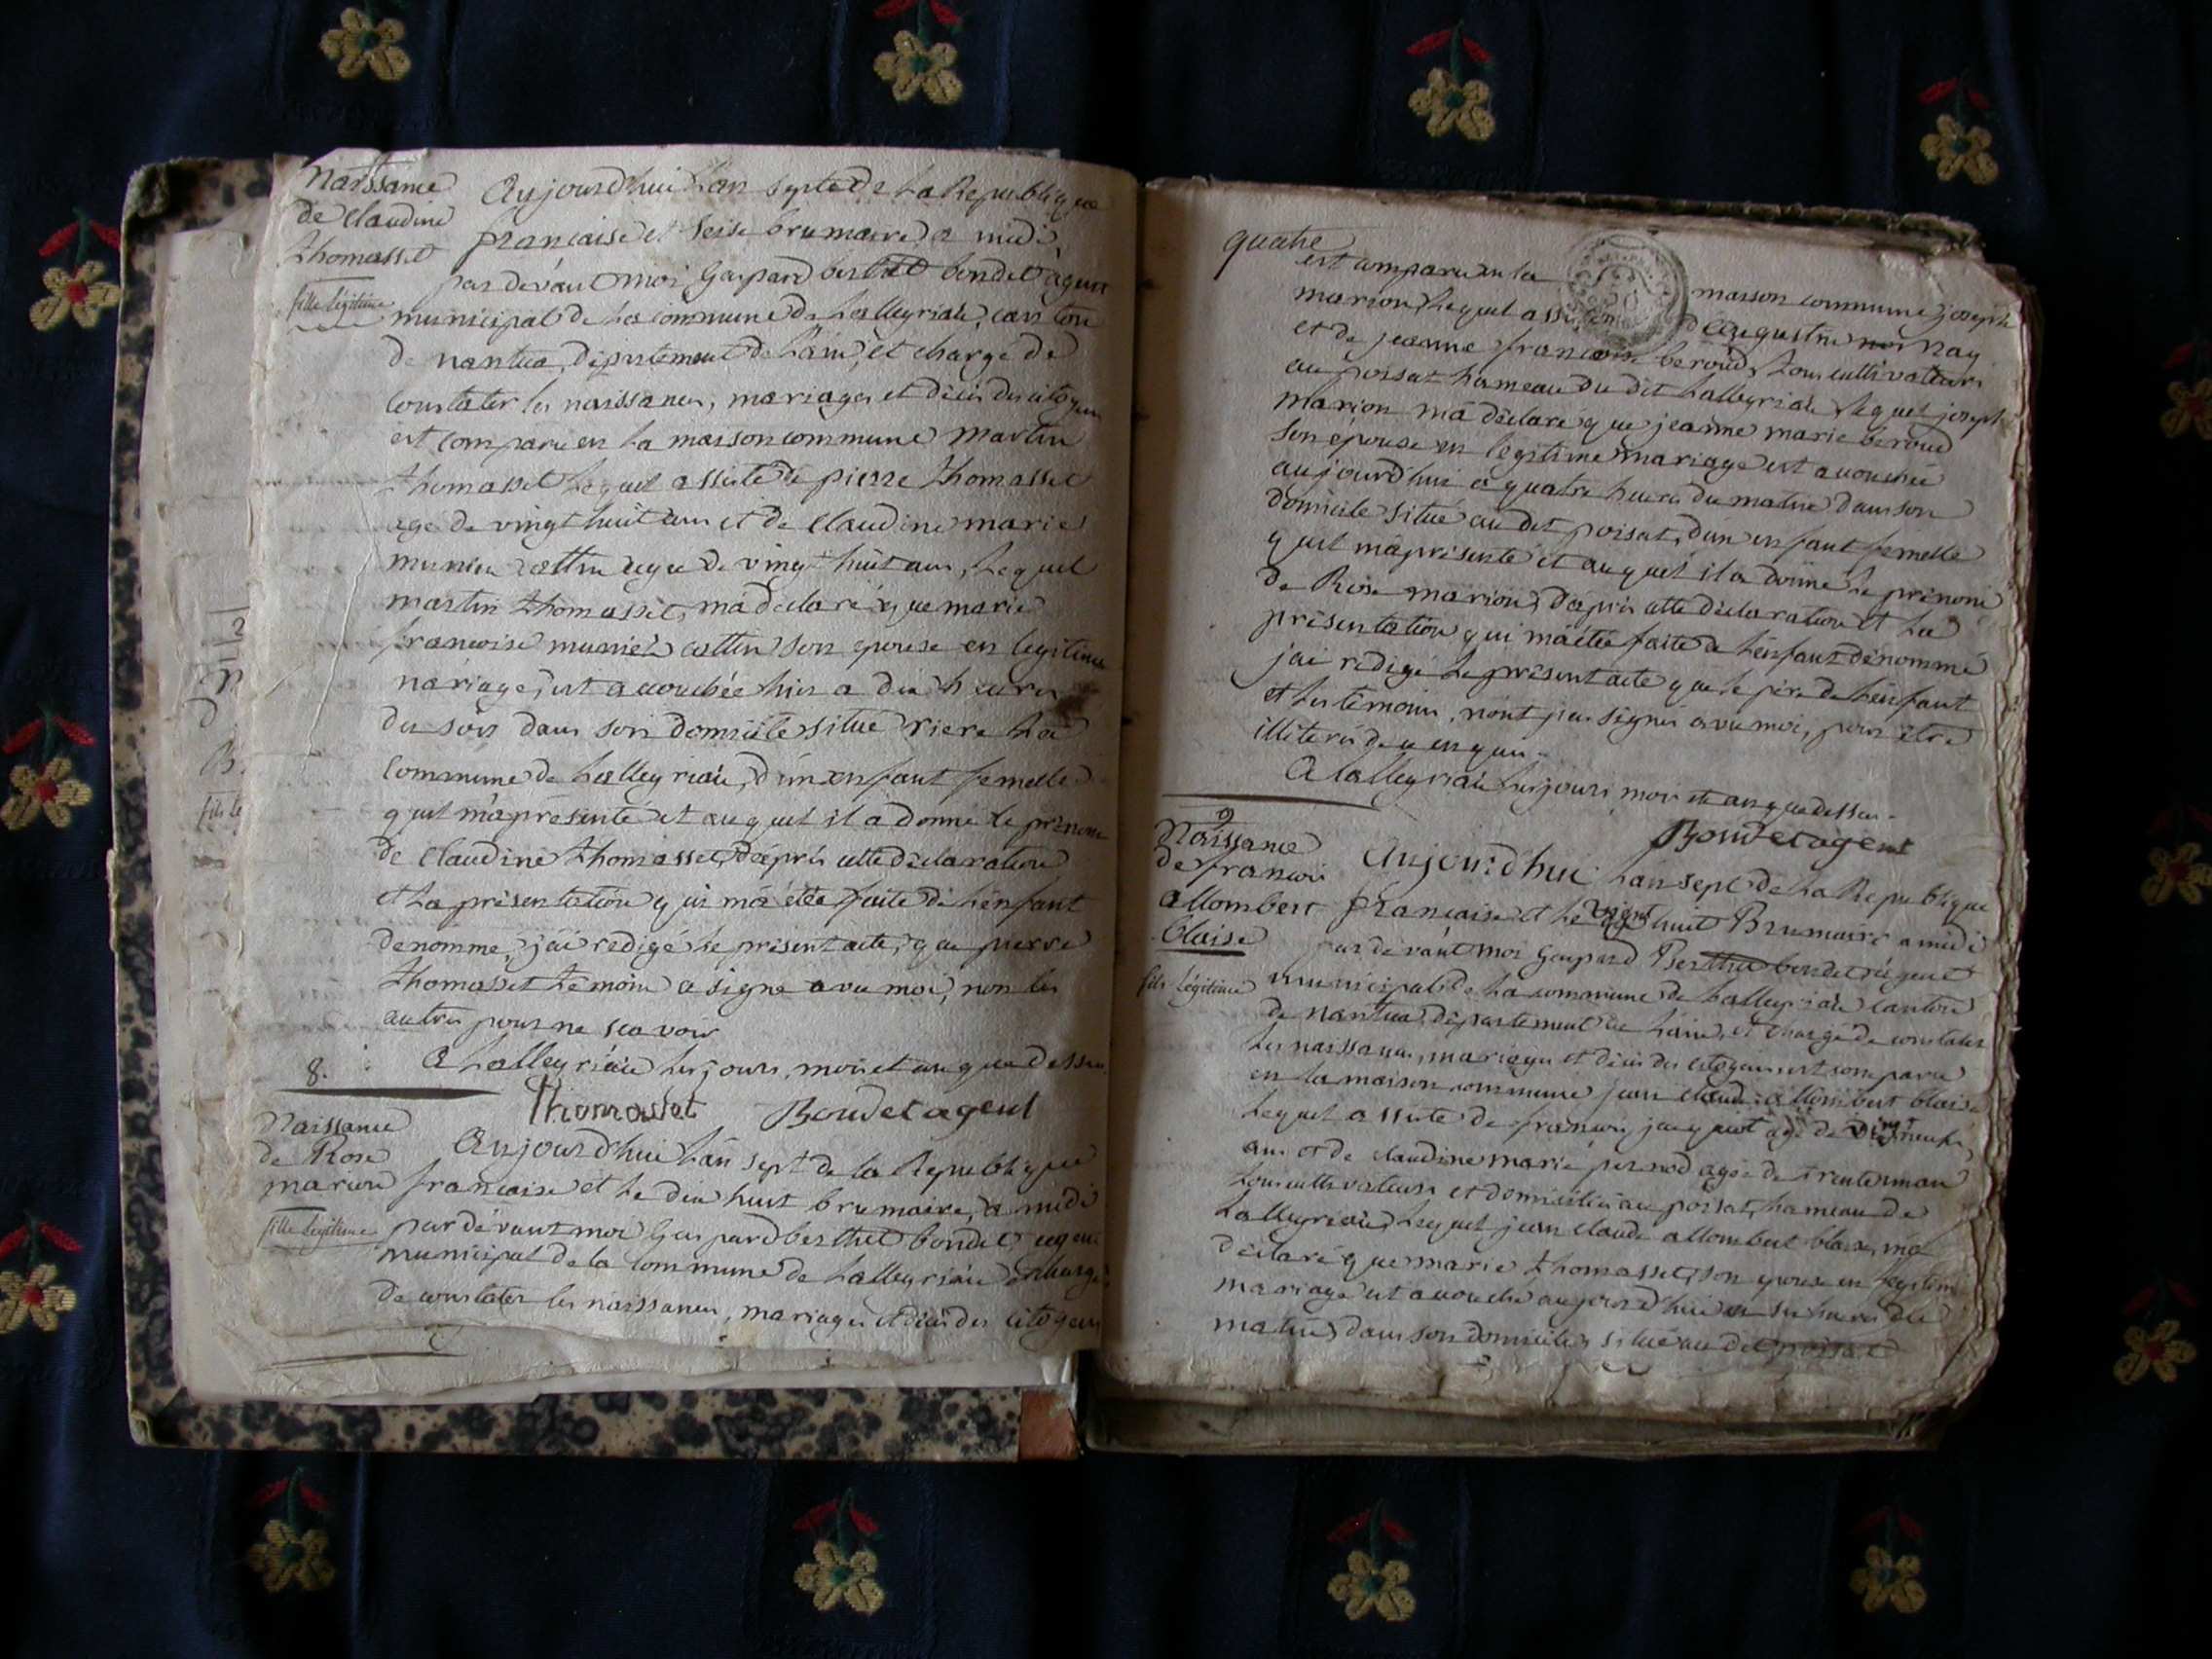 Naissance
de Claudine
thomasset
fille légitime
Aujourd'hui l'an septe de la Republique
francaise et seise brumaire, a midi,
par dévant moi Gaspard berthet bondet agent
municipal de la commune de Lalleyriat, canton
de nantua, département de l'ain, et chargé de
constater les naissances, mariages et décès des citoyens
est comparu en la maison commune martin
thomasset lequel assisté de pierre thomasset
agé de vingt huit ans et de Claudine marie
munier cattin agée de vingt huit ans, lequel
martin thomasset, m'a déclaré que marie
francoise munier cattin son epouse en legitime
mariage, est accouchée hier a dix heures
du soir dans son domicile situé riere la
commune de Lalleyriat, d'un enfant femelle
quil m'a présenté et auquel il a donné le prenom
de Claudine thomasset, d'après cette déclaration
et la présentation qui m'a étée faite de l'enfant
denommé, j'ai redigé le présent acte, que pierre
thomasset témoin a signé avec moi, non les
autres pour ne scavoir
A Lalleyriat les jours, mois et an que dessus
Thomasset Bondet agent
8.
Naissance
de Rose
marion
fille légitime
Aujourd'hui l'an sept de la Republique
francaise et le dix huit brumaire, a midi
par dévant moi Gaspard berthet bondet agent
municipal de la commune de Lalleyriat chargé
de constater les naissances, mariages et décès des citoyens
quatre
est comparu en la maison commune joseph
marion, lequel assisté d'augustin nay
et de jeanne francoise beroud, tous cultivateurs
au poisat hameau du dit Lalleyriat, lequel joseph
marion m'a déclaré que jeanne marie beroud
son épouse en legitime mariage est accouchée
aujourd'hui a quatre heures du matin dans son
domicile situé au dit poisat, d'un enfant femelle
quil m'a présenté et auquel il a donné le prénom
de Rose marion, d'après cette déclaration et la
présentation qui m'a étée faite de l'enfant dénommé
j'ai redigé le présent acte que le père de l'enfant
et les témoins, n'ont pas signés avec moi, pour être
illiterés de ce enquis
A lalleyriat les jours mois et an que dessus
Bondet agent
9
Naissance
de francois
allombert
blaise
fils légitime
Aujourd'hui l'an sept de la Republique
francaise et le vingt huit Brumaire a midi
par dévant moi Gaspard Berthet bondet agent
municipal de la commune de Lalleyriat canton
de nantua, département de l'ain, et chargé de constater
les naissances, mariages et décès des citoyens est comparu
en la maison commune jean claude allombert blaise
lequel assisté de francois jacquet agé de vingt neuf
ans et de claudine marie pernod agée de trente un an
tous cultivateurs et domiciliés au poisat, hameau de
Lalleyriat, lequel jean claude allombert blaise, m'a
déclaré que marie thomasset, son epouse en legitime
mariage est accouché aujourd'hui a six heures du
matin, dans son domicile, situé au dit poisat